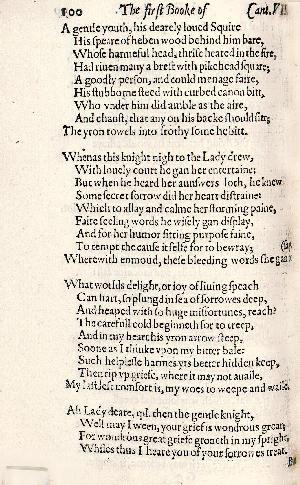 100 The first Booke of Cant. VII
A gentle youth, his dearely loued Squire
His speare of heben wood behind him bare,
Whose harmefull head, thrise heated in the fire,
Had riuen many a brest with pikehead square;
A goodly person, and could menage faire,
His stubborne steed with curbed canon bitt,
Who vnder him did amble as the aire,
And chauft, that any on his backe should sitt;
The yron rowels into frothy fome he bitt.
Whenas this knight nigh to the Lady drew,
With louely court he gan her entertaine;
But when he heard her aunswers loth, he knew
Some secret sorrow did her heart distraine:
Which to allay and calme her storming paine,
Faire feeling words he wisely gan display,
And for her humor fitting purpose faine,
To tempt the cause it selfe for to bewray;
Wherewith enmoud, these bleeding words she gan
What worlds delight, or ioy of liuing speach
Can hart, so plungd in sea of sorrowes deep,
And heaped with so huge misfortunes, reach?
The carefull cold beginneth for to creep,
And in my heart his yron arrow steep,
Soone as I thinke vpon my bitter bale:
Such helplesse harmes yts better hidden keep,
Then rip vp griefe, where it may not auaile,
My last left comfort is, my woes to weepe and waile.
Ah Lady deare, qd. then the gentle knight,
Well may I ween, your grief is wondrous great;
For wondrous great griefe groneth in my spright,
Whiles thus I heare you of your sorrowes treat.